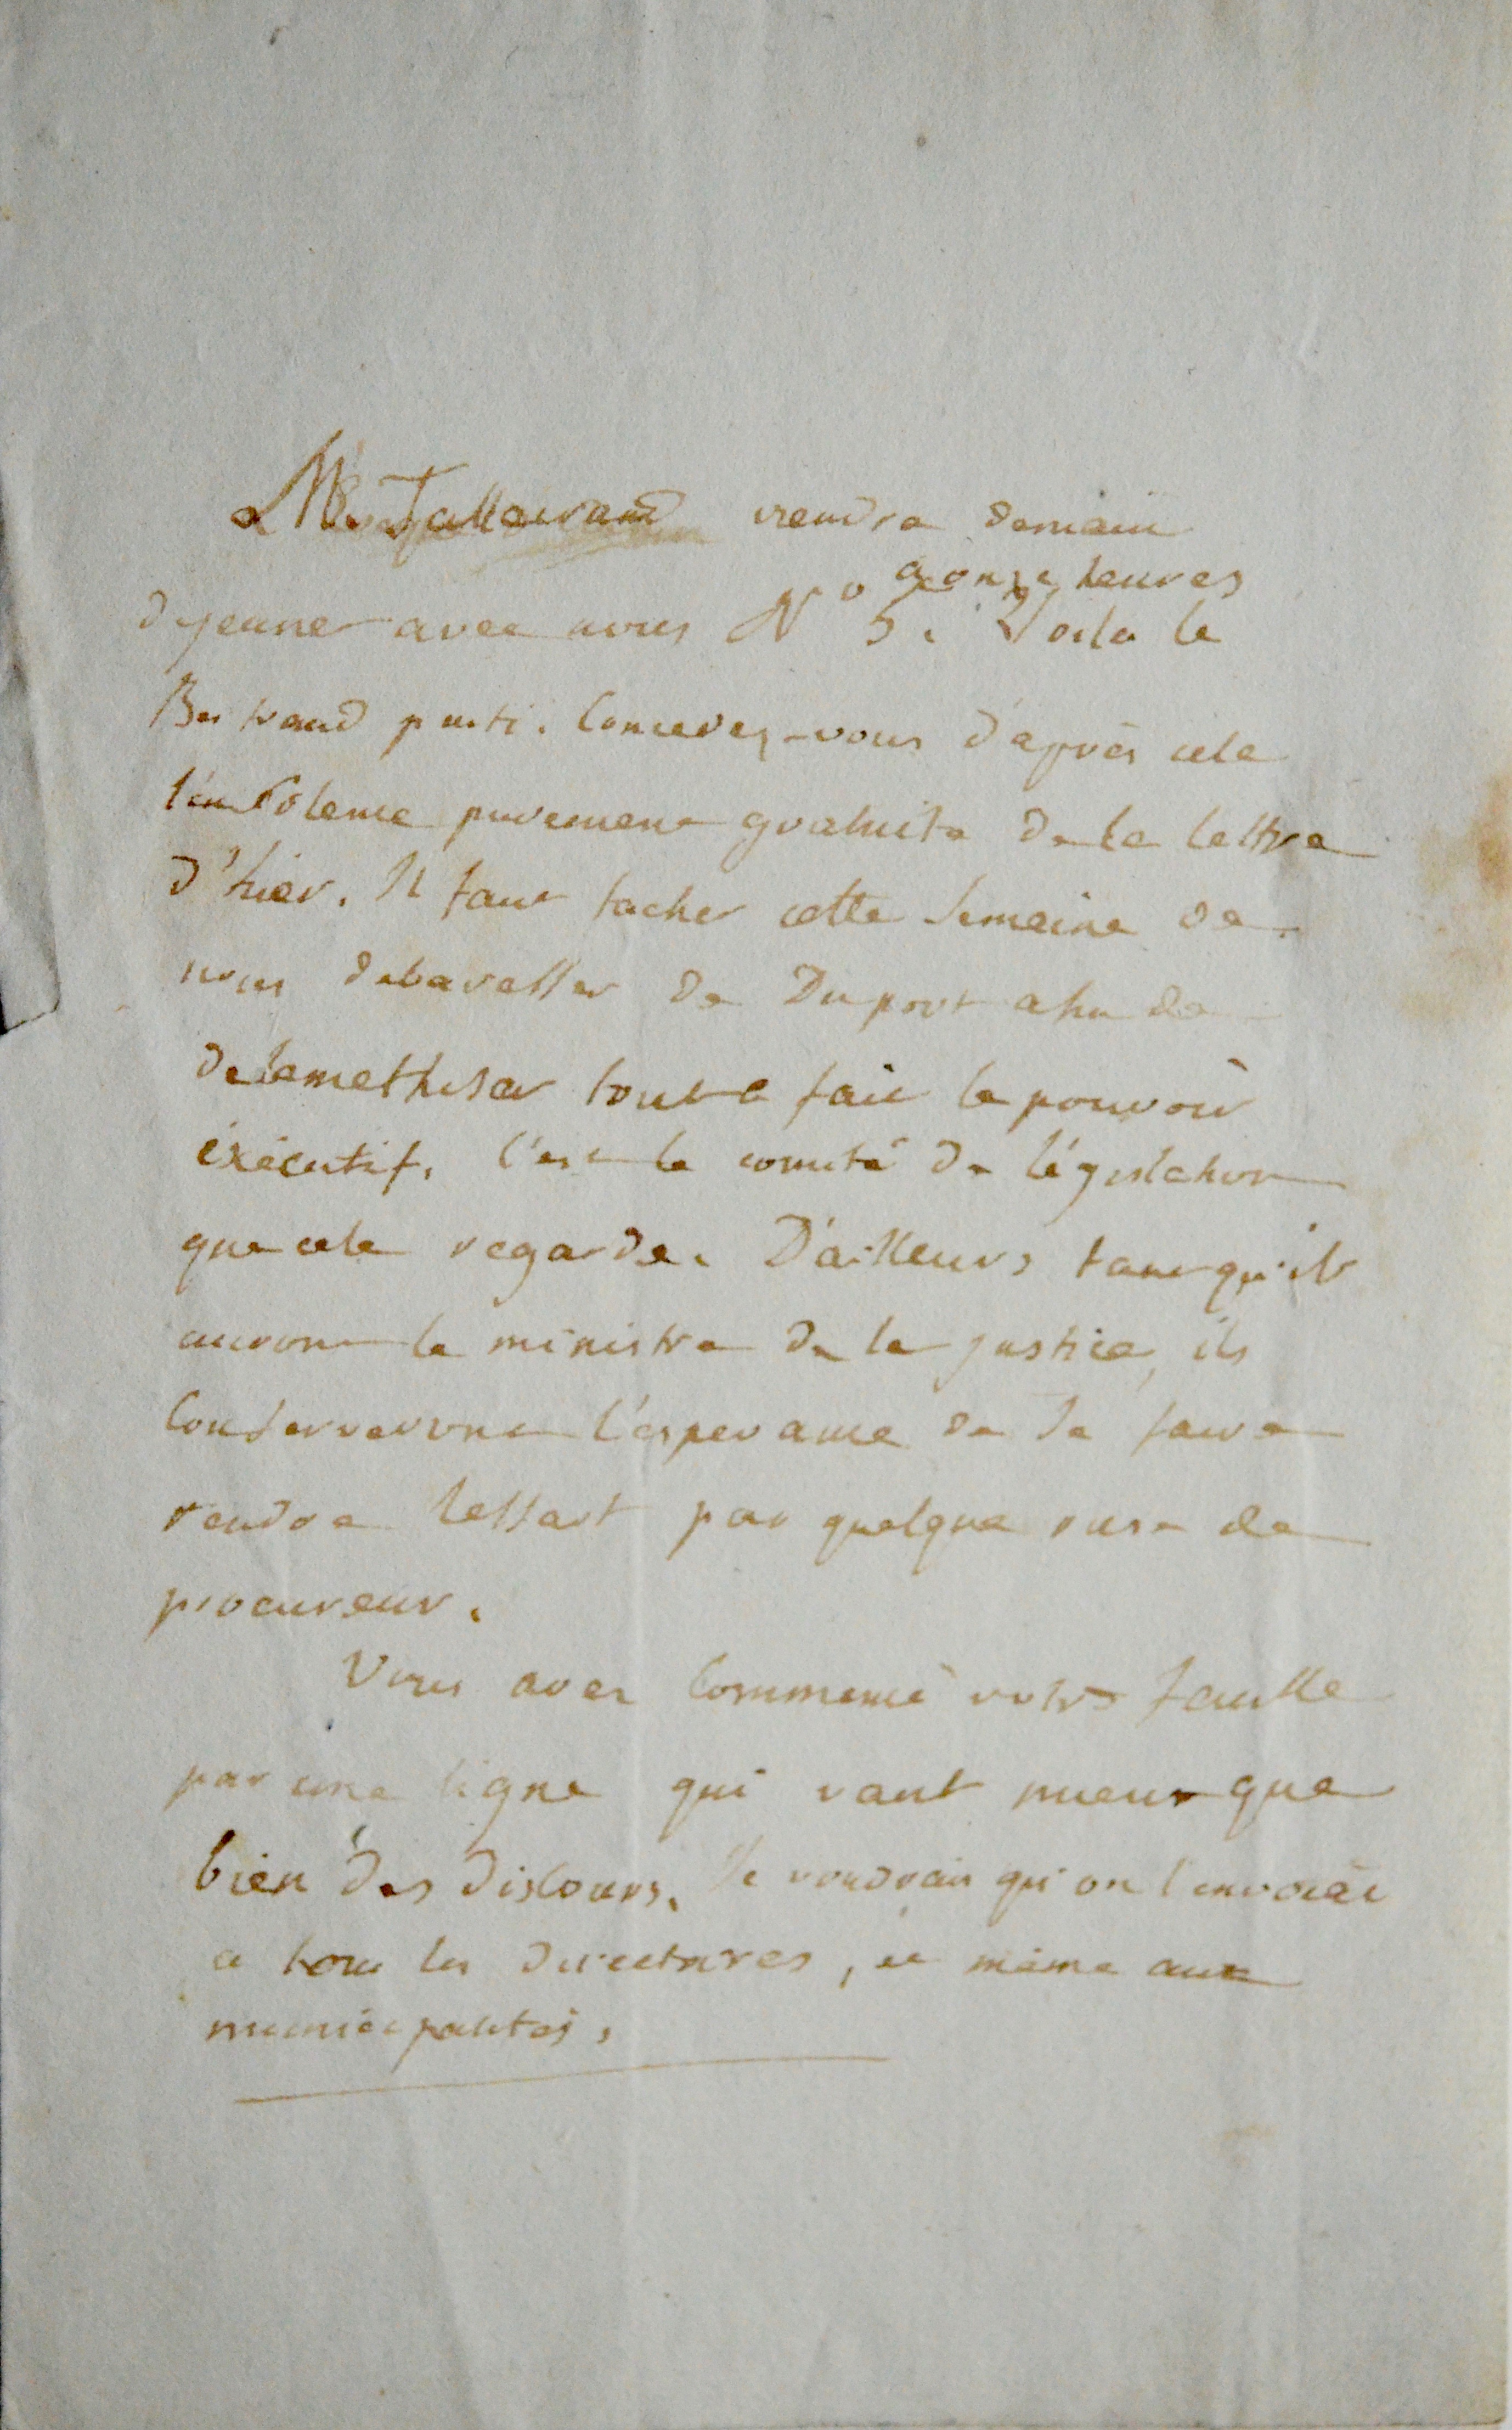 Mr Talleirand viendra demain
à onze heures
dejeuner avec nous N° 5. Voila le
Bertrand parti. Concevez-vous d'après cela
l'insolence purement gratuite de la lettre
d'hier. Il faut tacher cette semaine de
nous debarasser de Duport afin de
delamethiser tout a fait le pouvoir
exécutif, c'est le comité de législation
que cela regarde. D'ailleurs tant qu'ils
auront le ministre de la justice, ils
conserveront l'esperance de se faire
rendre lessart par quelque ruse de
procureur.
Vous avez commencé votre feuille
par une ligne qui vaut mieux que
bien des discours. Je voudrais qu'on l'envoiat
a tous les directoires, et même aux
municipalités.